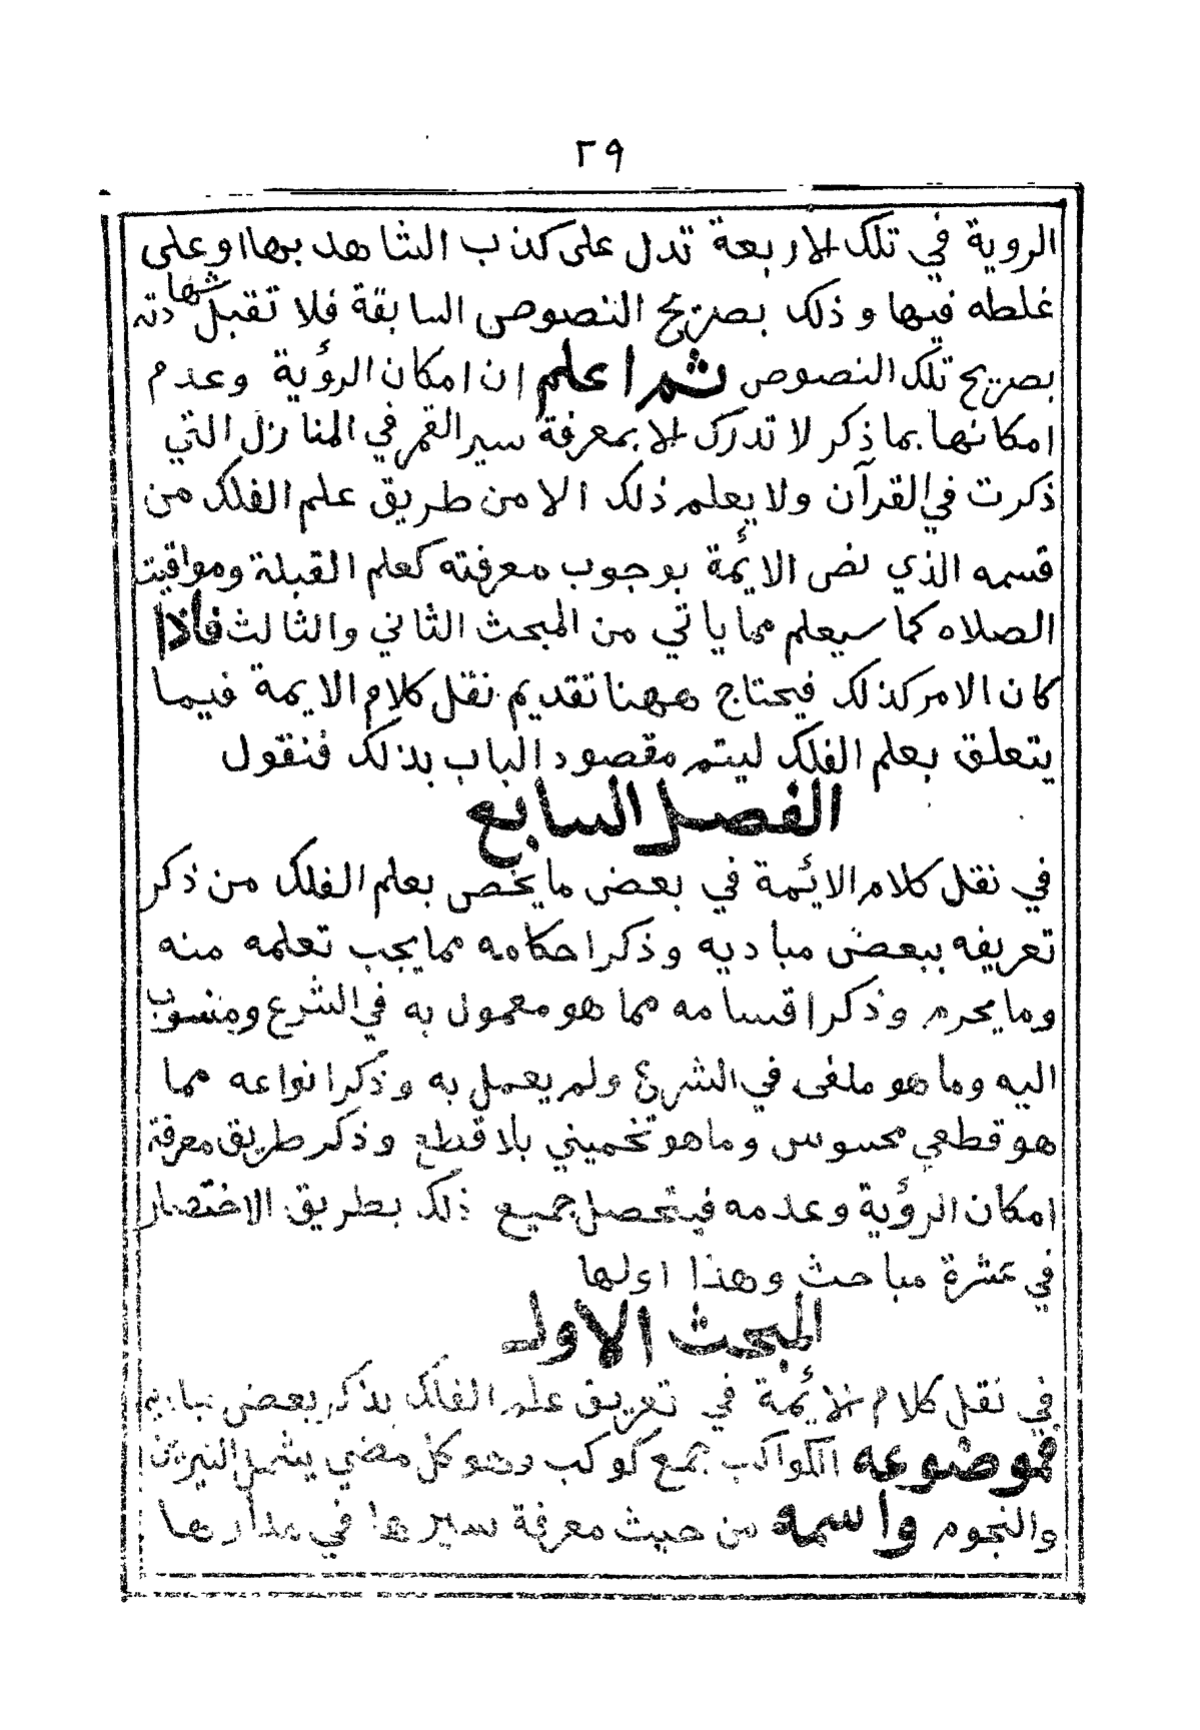 ٢٩
الروية في تلك الاربعة تدل على كذب الشاهد بها او على
غلطه فيها وذلك بصريح النصوص السابقة فلا تقبل شهادته
بصريح تلك النصوص ثم اعلم ان امكان الرؤية وعدم
امكانها بما ذكر لا تدرك الا بمعرفة سير القمر في المنازل التي
ذكرت في القرآن ولا يعلم ذلك الا من طريق علم الفلك من
قسمه الذي نص الائمة بوجوب معرفته كعلم القبلة ومواقيت
الصلاه كما سيعلم مما ياتي من المبحث الثاني والثالث فأذا
كان الامر كذلك فيحتاج ههنا تقديم نقل كلام الايمة فيما
يتعلق بعلم الفلك ليتم مقصود الباب بذلك فنقول
الفصل السابع
في نقل كلام الائمة في بعض ما يخص بعلم الفلك من ذكر
تعريفه ببعض مباديه وذكر احكامه مما يجب تعلمه منه
وما يحرم وذكر اقسامه مما هو معمول به في الشرع ومنسوب
اليه وما هو ملغى في الشرع ولم يعمل به وذكر انواعه مما
هو قطعي محسوس وما هو تخميني بلا قطع وذكر طريق معرفة
امكان الرؤية وعدمه فيتحصل جميع ذلك بطريق الاختصار
في عشرة مباحث وهذا اولها
المبحث الاول
في نقل كلام الائمة في تعريق علم الفلك بذكر بعض مباديه
فموضوعه الكواكب جمع كوكب وهو كل مضي يشمل النيرين
والنجوم واسمه من حيث معرفة سيرها في مدارها